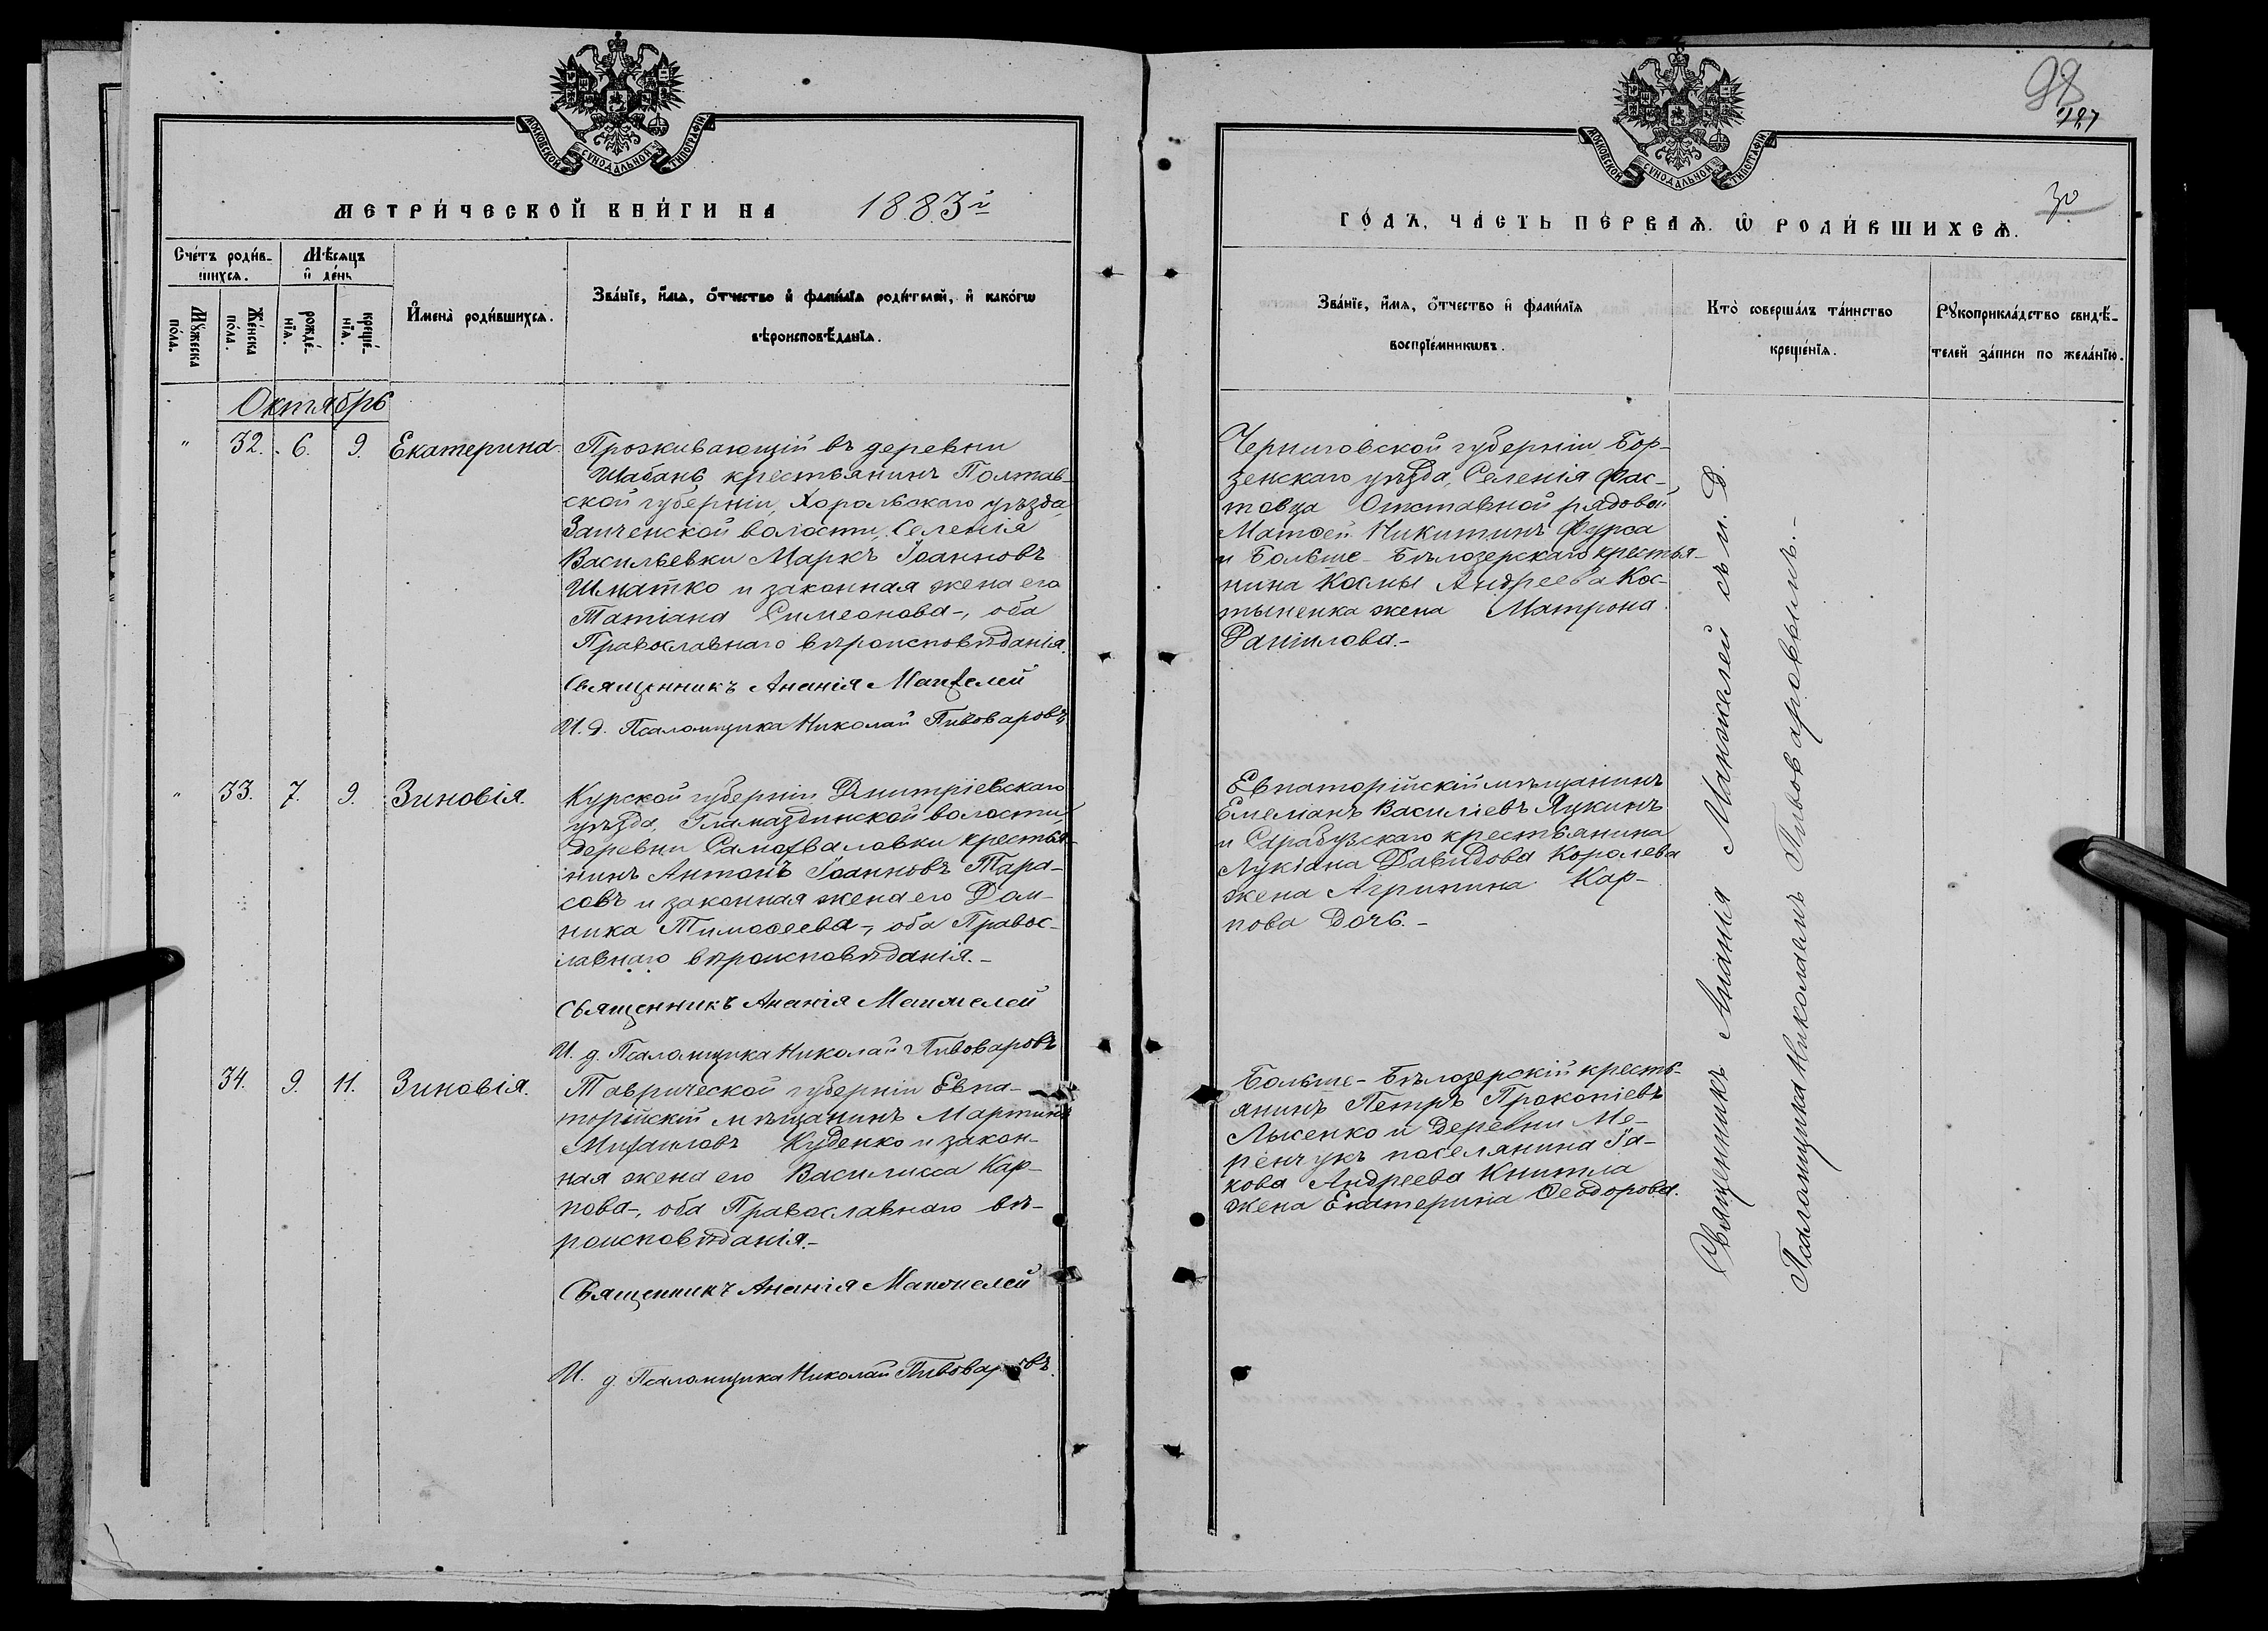 МОСКОВСКОЙ СУНОДАЛЬНОЙ ТИПОГРАФІИ
МЕТРИ́ЧЕСКОЙ КНИ́ГИ НА 1883й
Сче́тъ роди́вшихсѧ.
Мѣ́сяцъ и҆ де́нь
Мꙋ́жеска по́ла.
Же́нска по́ла.
рожде́нїѧ.
креще́нїѧ.
И҆мена̀ роди́вшихсѧ.
Зва́нїе, и҆́мѧ, ѻ҆́тчество и҆ фами́лїѧ роди́телей, и҆ како́гѡ
вѣроисповѣ́данїѧ.
Октябрь
" 32. 6. 9. Екатерина.
Проживающій въ деревни
Шабань крестьянинъ Полтав-
ской губерніи, Хорольскаго уѣзда,
Заиченской волости, Селенія
Васильевки Маркъ Іоанновъ
Шматко и законная жена его
Татіана Симеонова-, оба
Православнаго вѣроисповѣданія.
Священникъ Ананія Манжелей
И. д. Псаломщика Николай Пивоваровъ
" 33. 7. 9. Зиновія.
Курской губерніи Дмитріевскаго
уѣзда, Гламаздинской волости,
деревни Самохваловки крестья-
нинъ Антонъ Іоанновъ Тара-
совъ и законная жена его Дом-
ника Тимоѳеева-, оба Правос-
лавнаго вѣроисповѣданія.-
Священникъ Ананія Манжелей
И. д. Псаломщика Николай Пивоваровъ
34. 9. 11. Зиновія.
Таврической губерніи Евпа-
торійскій мѣщанинъ Мартинъ
Михаиловъ Куденко и закон-
ная жена его Василисса Кар-
пова-, оба Православнаго вѣ-
роисповѣданія.-
Священникъ Ананія Манжелей
И. д. Псаломщика Николай Пивоваровъ.
98
187
30
МОСКОВСКОЙ СУНОДАЛЬНОЙ ТИПОГРАФІИ
ГО́ДЪ, ЧА́СТЬ ПЕ́РВАѦ. Ѡ҆ РОДИ́ВШИХСѦ.
Зва́нїе, и҆́мѧ, ѻ҆́тчество и҆ фами́лїѧ
воспрїе́мникѡвъ.
Кто̀ соверша́лъ та́инство
креще́нїѧ.
Рꙋкоприкла́дство свидѣ́-
телей за́писи по жела́нїю.
Черниговской губерніи Бор-
зенскаго уѣзда, Селенія Фас-
товца Отставной рядовой
Матѳей Никитинъ Фурса
и Больше-Бѣлозерскаго крестья-
нина Космы Андреева Кос-
тыненка жена Матрона
Даніилова.-
Евпаторійскій мѣщанинъ
Емеліанъ Василіевъ Яцкинъ
и Сарабузскаго крестьянина
Лукіана Давидова Королева
жена Агрипина Кар-
пова дочь.-
Больше-Бѣлозерскій кресть-
янинъ Петръ Прокопіевъ
Лысенко и деревни Ме-
ренчукъ поселянина Іа-
кова Андреева Книтла
жена Екатерина Ѳеодорова.
Священникъ Ананія Манжелей съ и. д.
Псаломщика Николаемъ Пивоваровымъ.-